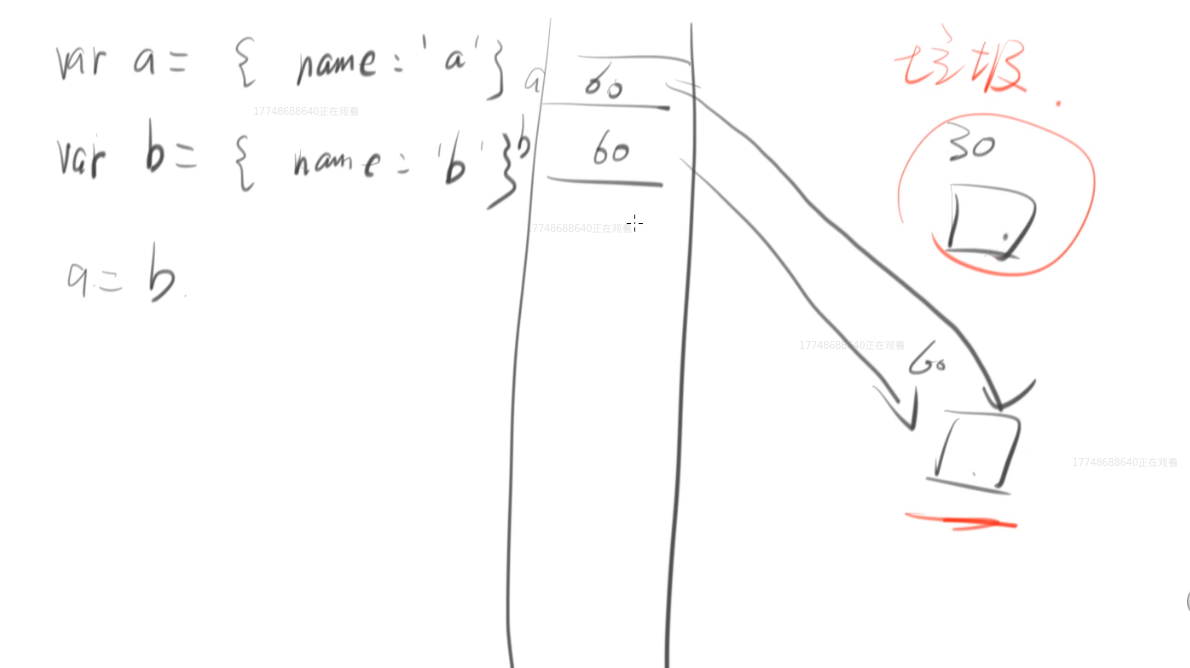 var a = { name : 'a' }
var b = { name : 'b' }
a = b
a
60
b
60
垃圾.
30
60
17748688640正在观看
17748688640正在观看
17748688640正在观看
17748688640正在观看